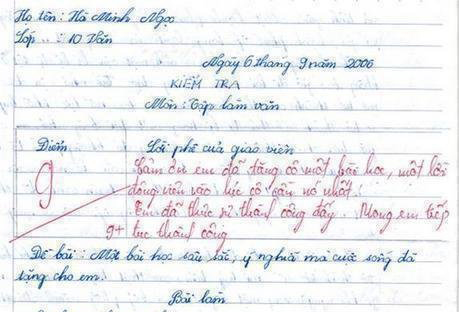 Họ tên : Hà Minh Ngọc
Lớp : 10 Văn
Ngày 6 tháng 9 năm 2006
KIỂM TRA
Môn : Tập làm văn
Điểm
Lời phê của giáo viên
9
Cảm ơn em đã tặng cô một bài học, một lời
động viên vào lúc cô cần nó nhất !
Em đã thực sự thành công đấy. Mong em tiếp
9+ tục thành công
Đề bài : Một bài học sâu sắc, ý nghĩa mà cuộc sống đã
tặng cho em.
Bài làm